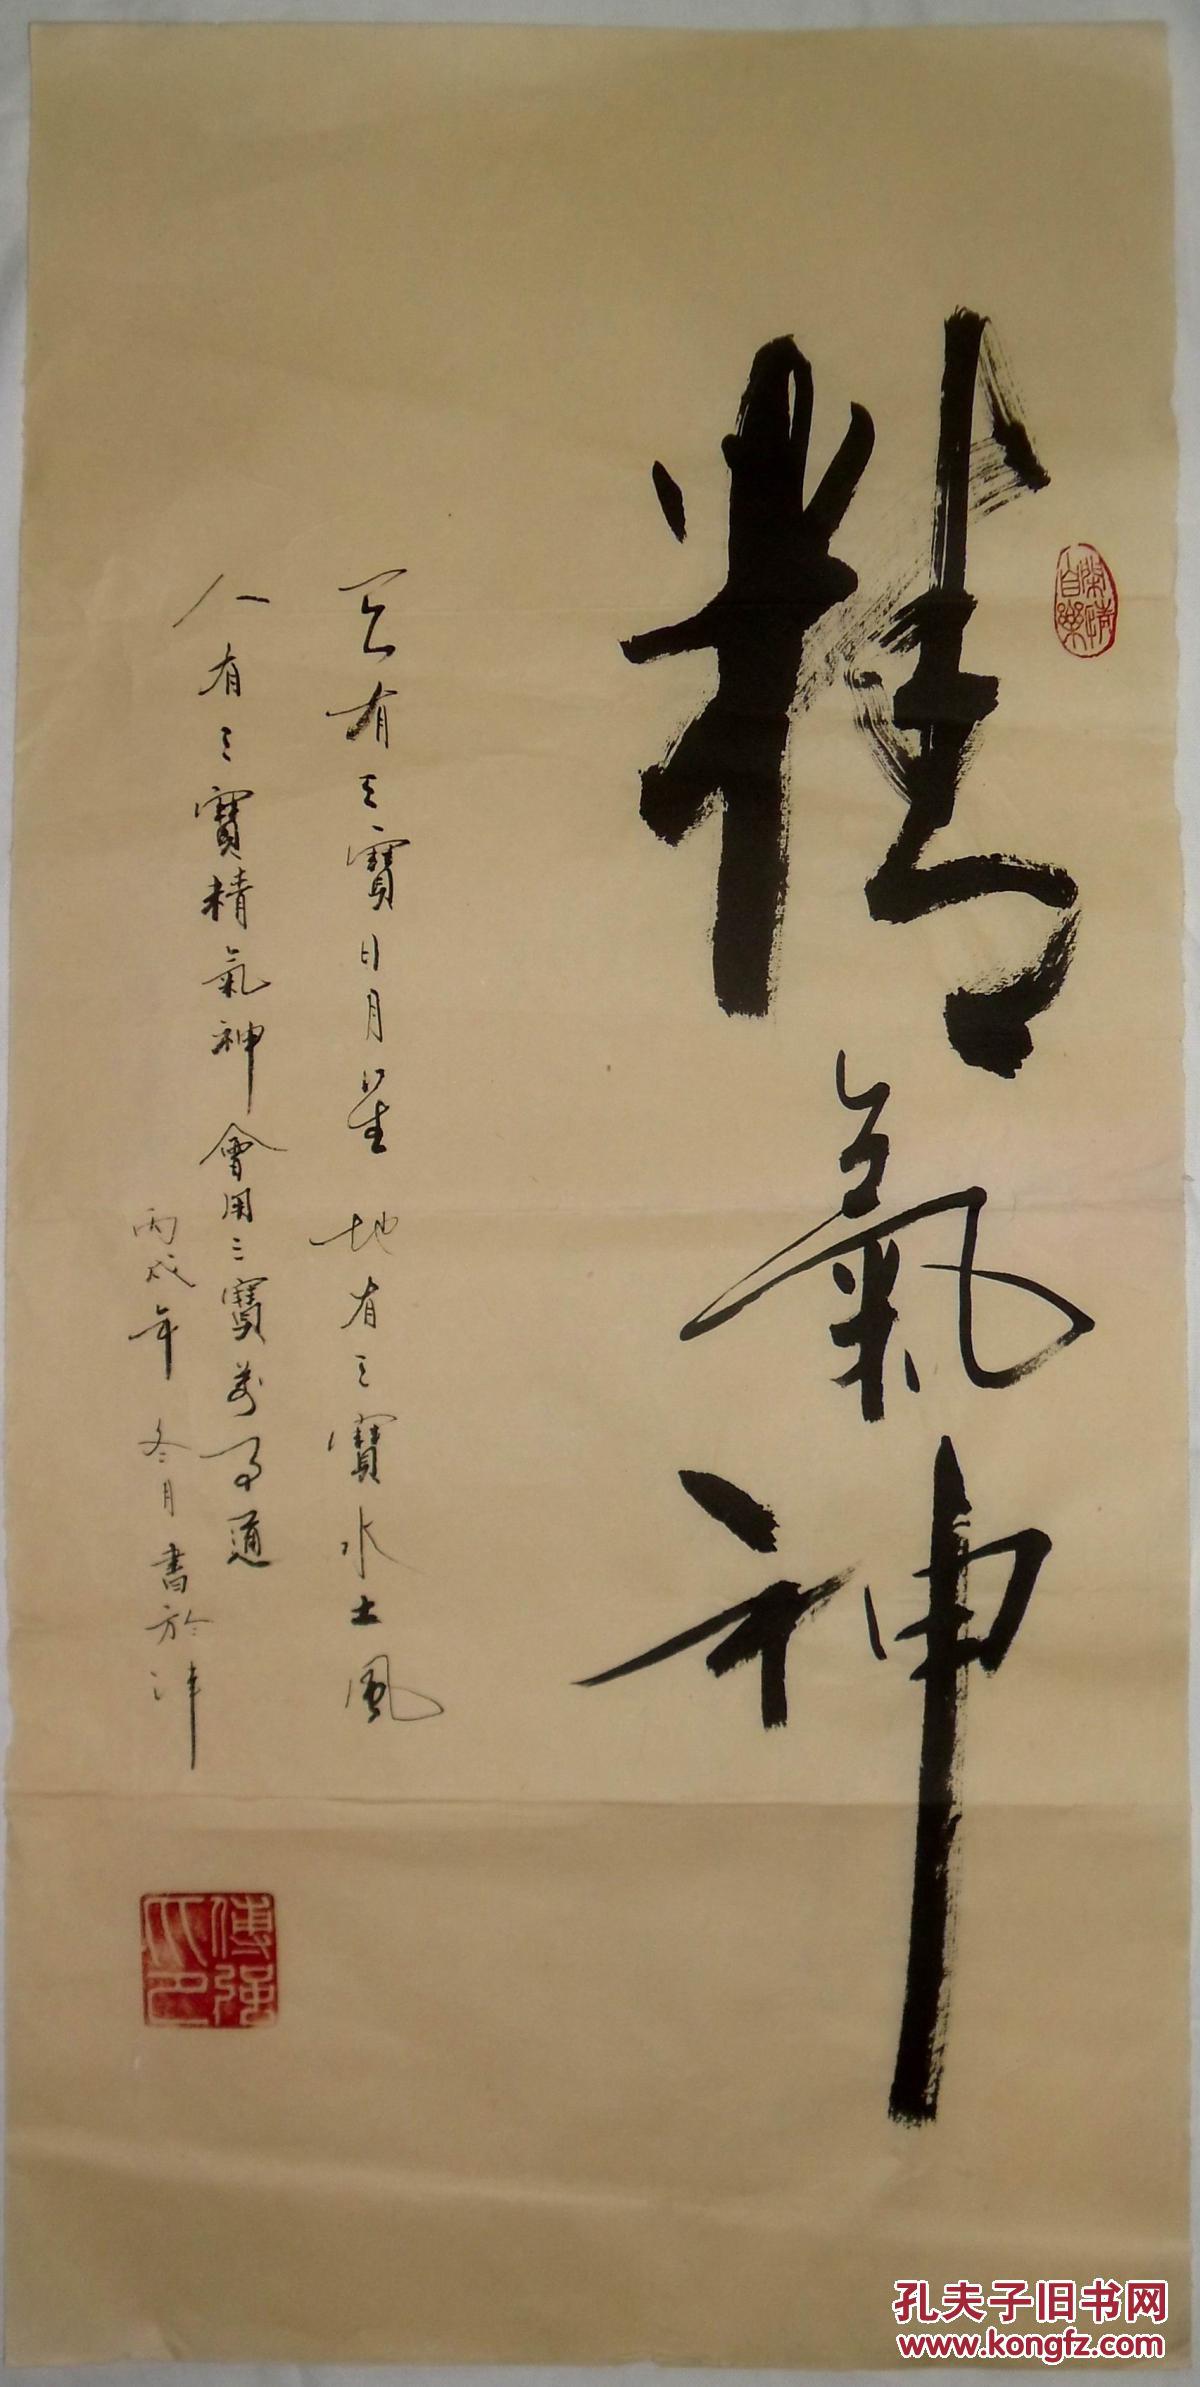 精氣神
天有三寶日月星 地有三寶水土風
人有三寶精氣神會用三寶萬事通
丙戌年 冬月書於津
傅强
孔夫子旧书网
www.kongfz.com